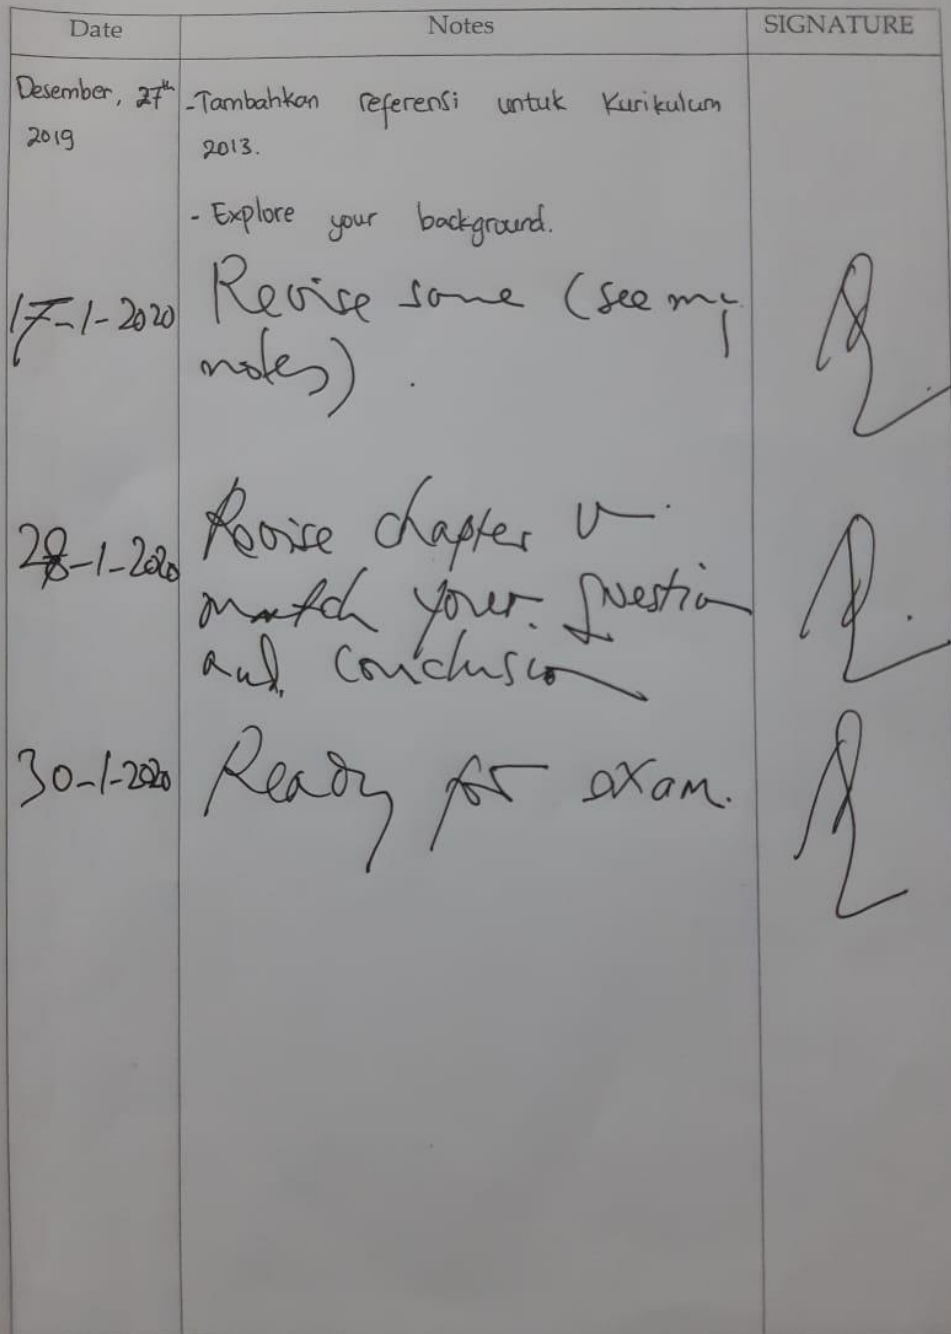 Date Notes SIGNATURE
Desember, 27th -Tambahkan referensi untuk Kurikulum
2019 2013.
- Explore your background.
17-1-2020 Revise some (see my
notes).
28-1-2020 Revise chapter V
match your question
and conclusion
30-1-2020 Ready for exam.